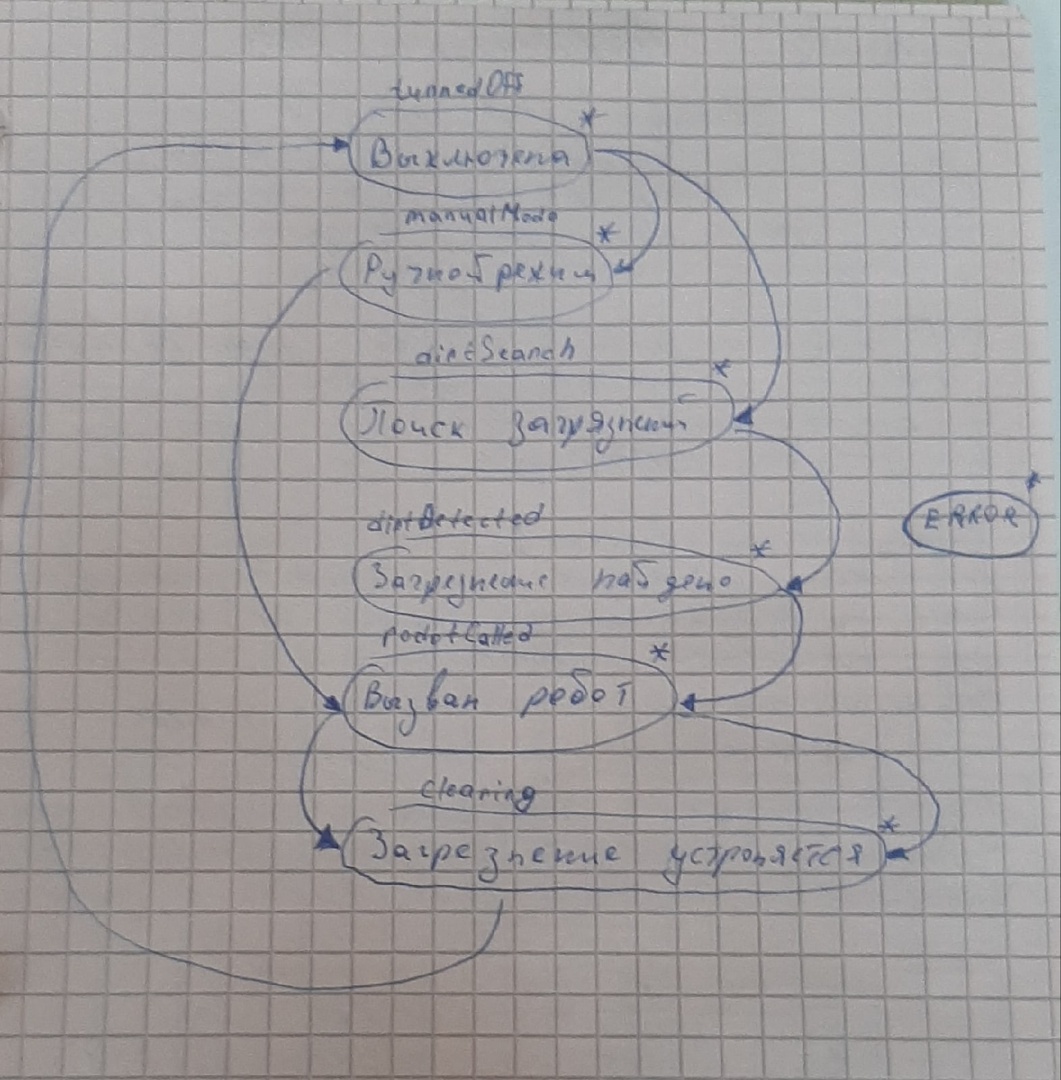 turnedOff
*
Выключена
manualMode
*
Ручной режим
dirtSearch
*
Поиск загрязнений
*
ERROR
dirtDetected
*
Загрезнение найдено
robotCalled
*
Вызван робот
clearing
*
Загрезнение устроняется